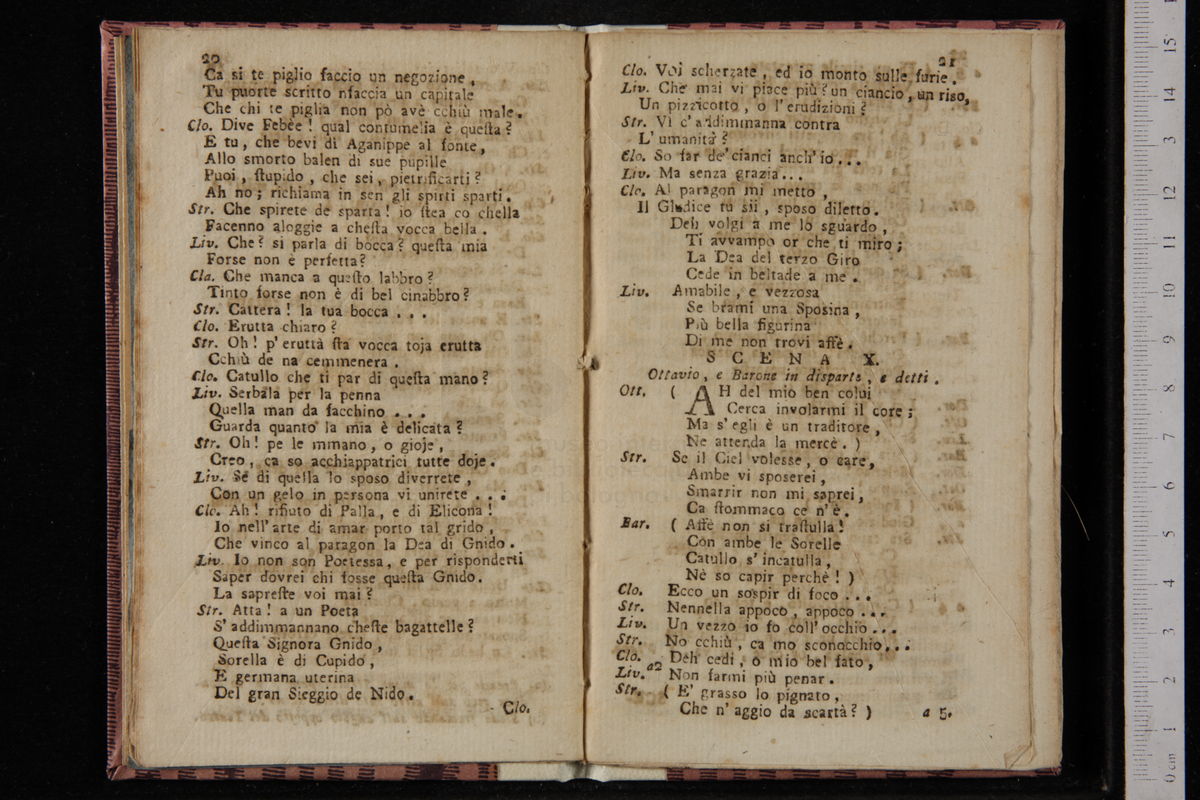 20
Ca si te piglio faccio un negozione,
Tu puorte scritto nfaccia un capitale
Che chi te piglia non pò avè cchiù male.
Clo. Dive Febèe! qual contumelia è questa?
E tu, che bevi di Aganippe al fonte,
Allo smorto balen di sue pupille
Puoi, stupido, che sei, pietrificarti?
Ah no; richiama in sen gli spirti sparti.
Str. Che spirete de sparta! io stea co chella
Facenno aloggie a chesta vocca bella.
Liv. Che? si parla di bocca? questa mia
Forse non è perfetta?
Clo. Che manca a questo labbro?
Tinto forse non è di bel cinabbro?
Str. Cattera! la tua bocca...
Clo. Erutta chiaro?
Str. Oh! p'eruttà sta vocca toja erutta
Cchiù de na cemmenera.
Clo. Catullo che ti par di questa mano?
Liv. Serbala per la penna
Quella man da facchino...
Guarda quanto la mia è delicata?
Str. Oh! pe le mmano, o gioje,
Creo, ca so acchiappatrici tutte doje.
Liv. Se di quella lo sposo diverrete,
Con un gelo in persona vi unirete...
Clo. Ah! rifiuto di Palla, e di Elicona!
Io nell'arte di amar porto tal grido,
Che vinco al paragon la Dea di Gnido.
Liv. Io non son Poetessa, e per risponderti
Saper dovrei chi fosse questa Gnido.
La sapreste voi mai?
Str. Atta! a un Poeta
S'addimmannano cheste bagattelle?
Questa Signora Gnido,
Sorella è di Cupido,
E germana uterina
Del gran Sieggio de Nido.
Clo.
21
Clo. Voi scherzate, ed io monto sulle furie.
Liv. Che mai vi piace più? un ciancio, un riso,
Un pizzicotto, o l'erudizioni?
Str. Vi c'addimmanna contra
L'umanità?
Clo. So far de'cianci anch'io...
Liv. Ma senza grazia...
Clo. Al paragon mi metto,
Il Giudice tu sii, sposo diletto.
Deh volgi a me lo sguardo,
Ti avvampo or che ti miro;
La Dea del terzo Giro
Cede in beltade a me.
Liv. Amabile, e vezzosa
Se brami una Sposina,
Più bella figurina
Di me non trovi affè.
SCENA X.
Ottavio, e Barone in disparte, e detti.
Ott. ( AH del mio ben colui
Cerca involarmi il core;
Ma s'egli è un traditore,
Ne attenda la mercè. )
Str. Se il Ciel volesse, o care,
Ambe vi sposerei,
Smarrir non mi saprei,
Ca stommaco ce n'è.
Bar. ( Affè non si trastulla!
Con ambe le Sorelle
Catullo s'incatulla,
Nè so capir perchè! )
Clo. Ecco un sospir di foco...
Str. Nennella appoco, appoco...
Liv. Un vezzo io fo coll'occhio...
Str. No cchiù, ca mo sconocchio...
Clo. Deh cedi, o mio bel fato,
Liv. a2 Non farmi più penar.
Str. ( E' grasso lo pignato,
Che n'aggio da scartà? )
a 5.